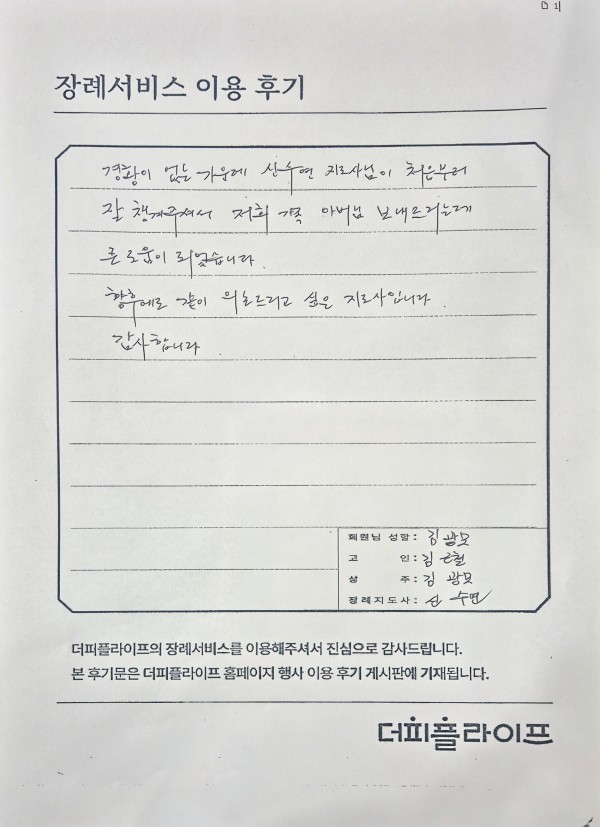 장례서비스 이용 후기
경황이 없는 가운데 신수연 지도사님이 처음부터
잘 챙겨주셔서 저희 가족 아버님 보내드리는데
큰 도움이 되었습니다.
향후에도 같이 의논드리고 싶은 지도사입니다.
감사합니다
회원님 성함: 김광모
고 인: 김 철
상 주: 김 광모
장례지도사: 신 수연
더피플라이프의 장례서비스를 이용해주셔서 진심으로 감사드립니다.
본 후기문은 더피플라이프 홈페이지 행사 이용 후기 게시판에 기재됩니다.
더피플라이프